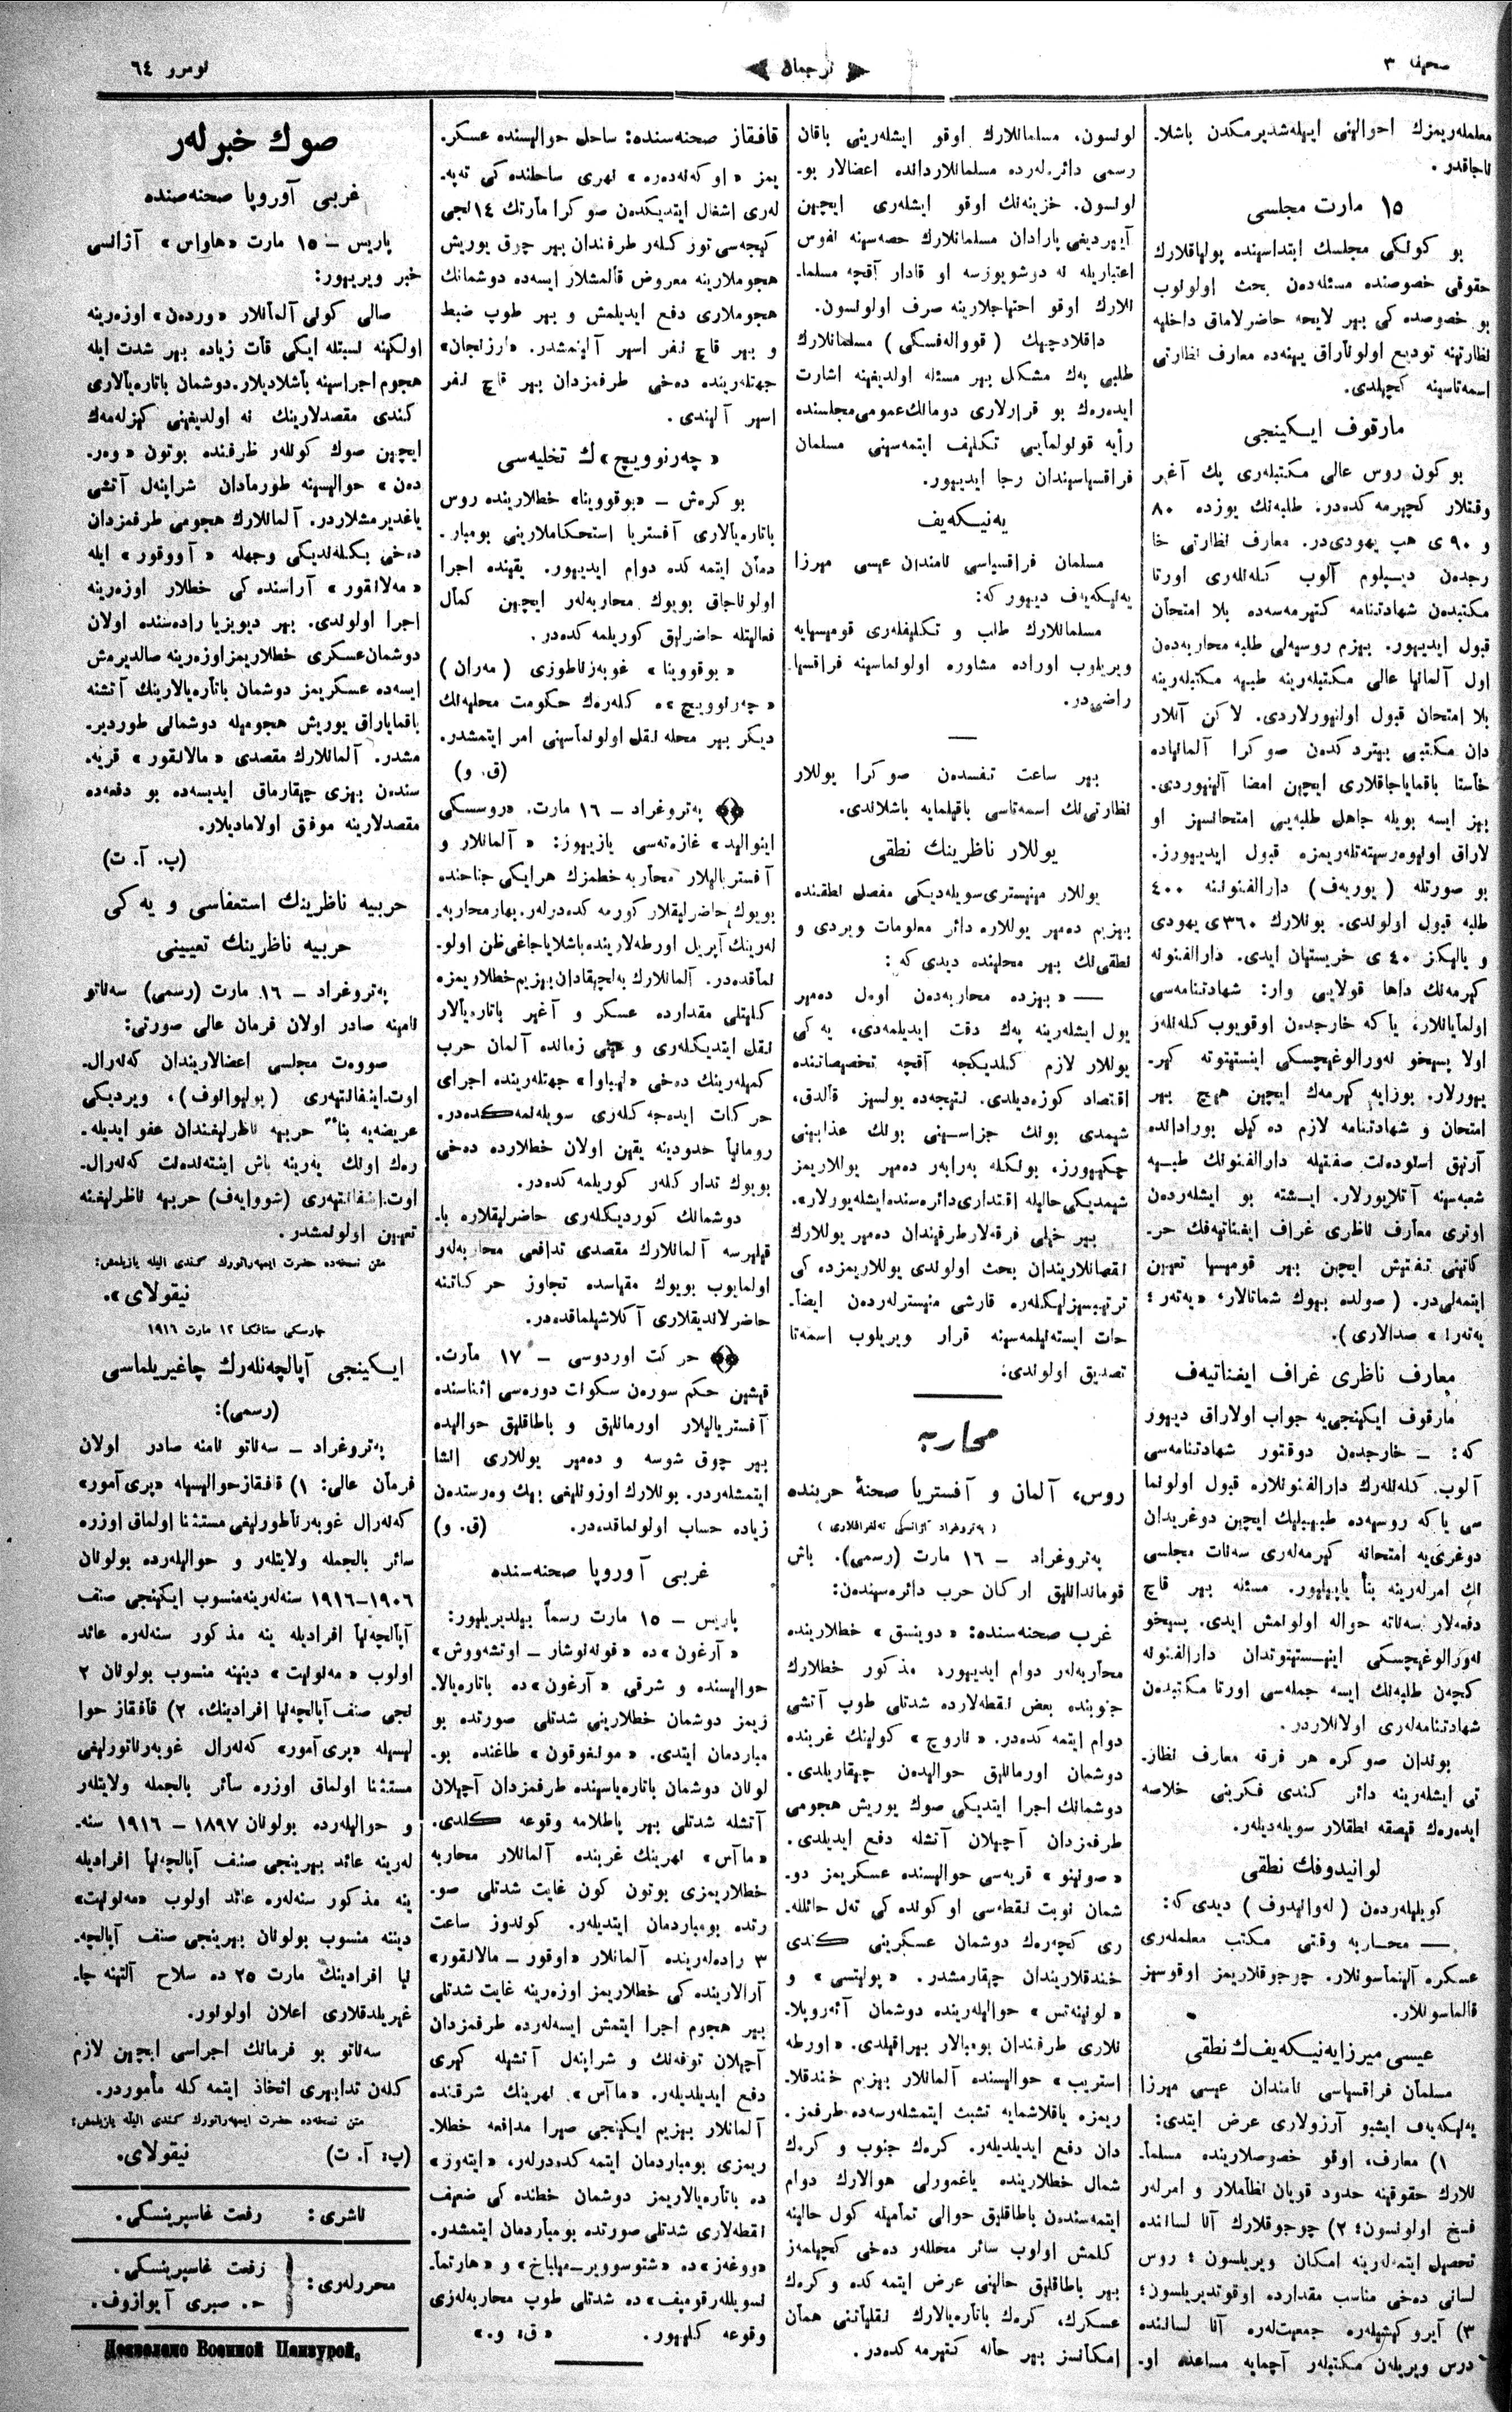 صحیفا ٣
ترجمان
نومرو ٦٤
معلمله‌ریمزك احوالہنی ایہله‌شدیرمکدن باشلا-
ناجاقدر.
١٥ مارت مجلسی
بو کونکی مجلسك ابتداسہنده پولہاقلارك
حقوقی خصوصنده مسئله‌دن بحث اولونوب
بو خصوصده کی بہر لایحه حاضرلاماق داخلیه
نظارتہنه تودیع اولوناراق یہنه‌ده معارف نظارتی
اسمه‌تاسہنه کچہلدی.
مارقوف ایکینجی
بو کون روس عالی مکتبله‌ری پك آغیر
وقتلار کچہرمه کده‌در. طلبه‌نك یوزده ٨٠
و ٩٠ ی هپ یهودی‌در. معارف نظارتی خا
رجدن دیپلوم آلوب کله‌نله‌ری اورتا
مکتبدن شهادتنامه کتہرمه‌سه‌ده بلا امتحان
قبول ایدیہور. بہزم روسہه‌لی طلبه محاربه‌دن
اول آلمانہا عالی مکتبله‌رینه طبہه مکتبله‌رینه
بلا امتحان قبول اولنہورلاردی. لاکن آنلار
دان مکتبی بہتردکدن صوکرا آلمانہاده
خاستا باقمایاجاقلاری ایچہن امضا آلنہوردی.
بہز ایسه بویله جاهل طلبه‌یی امتحانسہز او
لاراق اونہوه‌رسہته‌تله‌ریمزه قبول ایدیہورز.
بو صورتله (یوریه‌ف) دارالفنوننه ٤٠٠
طلبه قبول اولوندی. بونلارك ٣٦٠ ی یهودی
و یالہکز ٤٠ ی خرستہان ایدی. دارالفنونه
کہرمه‌نك داها قولایی وار: شهادتنامه‌سی
اولمایانلار، یا که خارجدن اوقویوب کله‌نله‌ر
اولا پسہخو نه‌ورالوغہچسکی اینستہتوته کہر-
یہورلار. بورایه کہرمه‌ك ایچہن هہچ بہر
امتحان و شهادتنامه لازم ده کہل بورادانده
آرتق استوده‌نت صفتہله دارالفنونك طبہه
شعبه‌سہنه آتلایورلار. ایشته بو ایشله‌ردن
اوتری معارف ناظری غراف ایغناتیه‌فك حر-
کاتہنی تفتہش ایچہن بہر قومہسہا تعہین
ایتمه‌لی‌در. (صولده بہوك شماتالار، «یه‌ته‌ر؛
یه‌ته‌ر!» صدالاری).
معارف ناظری غراف ایغناتیه‌ف
مارقوف ایکہنجی‌یه جواب اولاراق دیہور
که: — خارجدن دوقتور شهادتنامه‌سی
آلوب کله‌نله‌رك دارالفنونلاره قبول اولونما
سی یا که روسہه‌ده طبہبلیك ایچہن دوغریدان
دوغری‌یه امتحانه کہرمه‌له‌ری سه‌نات مجلسی
نك امرله‌رینه بنأ یاپہلہور. مسئله بہر قاچ
دفعه‌لار سه‌ناته حواله اولونمش ایدی. پسہخو
نه‌ورالوغہچسکی اینستہتوتدان دارالفنونه
کچه‌ن طلبه‌نك ایسه جمله‌سی اورتا مکتبدن
شهادتنامه‌له‌ری اولانلاردر.
بوندان صوکره هر فرقه معارف نظار-
تی ایشله‌رینه دائر کندی فکرینی خلاصه
ایده‌ره‌ك قہصقه نطقلار سویله‌دیله‌ر.
لوانیدوفك نطقی
کویلہله‌ردن (له‌وانہدوف) دیدی که:
— محاربه وقتی مکتب معلمله‌ری
عسکره آلہنماسونلار. چوجوقلاریمز اوقوسہز
قالماسونلار.
عیسی میرزا یه‌نیکه‌یف‌ك نطقی
مسلمان فراقسہاسی نامندان عہسی مہرزا
یه‌نہکه‌یه‌ف ایشبو آرزولاری عرض ایتدی:
١) معارف، اوقو خصوصلارینده مسلما-
نلارك حقوقہنه حدود قویان نظاملار و امرله‌ر
فسخ اولونسون؛ ٢) چوجوقلارك آنا لساننده
تحصہل ایتمه‌له‌رینه امکان ویریلسون؛ روس
لسانی ده‌خی مناسب مقدارده اوقوتدیریلسون؛
٣) آیرو کہشہله‌ره جمعیت‌له‌ره آنا لساننده
درس ویریله‌ن مکتبله‌ر آچمایه مساعده او-
لونسون، مسلمانلارك اوقو ایشله‌رینی باقان
رسمی دائره‌له‌رده مسلمانلاردانده اعضالار بو-
لونسون. خزینه‌نك اوقو ایشله‌ری ایچہن
آییردیغی پارادان مسلمانلارك حصه‌سہنه نفوس
اعتباریله نه دوشویورسه او قادار آقچه مسلما-
نلارك اوقو احتہاجلارینه صرف اولونسون.
داقلادچہك (قوواله‌فسکی) مسلمانلارك
طلبی یه‌ك مشکل بہر مسئله اولدیغہنه اشارت
ایده‌ره‌ك بو قرارلاری دومانك عمومی مجلسنده
رأیه قولولمایی تکلیف ایتمه‌سہنی مسلمان
فراقسہاسہندان رجا ایدیہور.
یه‌نیکه‌یف
مسلمان فراقسہاسی نامندان عہسی مہرزا
یه‌نہکه‌یه‌ف دیہور که:
مسلمانلارك طلب و تکلیفله‌ری قومہسہایه
ویریلوب اوراده مشاوره اولونماسہنه فراقسہا
راضی‌در.
بہر ساعت تنفسدن صوکرا یوللار
نظارتی‌نك اسمه‌تاسی باقہلمایه باشلاندی.
یوللار ناظرینك نطقی
یوللار مہنہستری سویله‌دیکی مفصل نطقنده
بہزیم ده‌مہر یوللاره دائر معلومات ویردی و
نطقی‌نك بہر محلہنده دیدی که:
— «بہزده محاربه‌دن اوول ده‌مہر
یول ایشله‌رینه یه‌ك دقت ایدیلمه‌دی، یه کی
یوللار لازم کلدیکجه آقچه تخصہصاتنده
اقتصاد کوزه‌دیلدی. نتہجه‌ده یولسہز قالدق،
شہمدی بونك جزاسہنی بونك عذابہنی
چکہیورز، بونکله به‌رابه‌ر ده‌مہر یوللاریمز
شہمدیکی حالہله اقتداری دائره‌سنده ایشله‌یورلار».
بہر خہلی فرقه‌لار طرفہندان ده‌مہر یوللارك
نقصانلاریندان بحث اولوندی یوللاریمزده کی
ترتہبسہزلہکله‌ره قارشی منہسترله‌ردن ایضا-
حات ایسته‌نہلمه‌سہنه قرار ویریلوب اسمه‌تا
تصدیق اولوندی.
محاربه
روس، آلمان و آفستریا صحنهٔ حربنده
(په‌تروغراد آژانسکی ته‌لغرافلاری)
په‌تروغراد — ١٦ مارت (رسمی). باش
قومانداالہق ارکان حرب دائره‌سہندن:
غرب صحنه‌سنده: «دوینسق» خطلارینده
محاربه‌له‌ر دوام ایدیہور. مذکور خطلارك
جنوبنده بعض نقطه‌لارده شدتلی طوپ آتشی
دوام ایتمه کده‌در. «ناروچ» کولہنك غربنده
دوشمان اورمانلہق حوالہدن چہقاریلدی.
دوشمانك اجرا ایتدیکی صوك یوریش هجومی
طرفمزدان آچہلان آتشله دفع ایدیلدی.
«صولہنو» قریه‌سی حوالہسنده عسکریمز دو-
شمان نوبت نقطه‌سی اوکونده کی ته‌ل حائلله-
ری کچه‌ره‌ك دوشمان عسکرینی کندی
خندقلاریندان چہقارمشدر. «پولہتسی» و
«لونہنه‌تس» حوالہله‌رینده دوشمان آئه‌روپلا-
نلاری طرفندان بومبالار بہراقہلدی. «اورطه
استریپ» حوالہسنده آلمانلار بہزیم خندقلا-
ریمزه یاقلاشمایه تشبث ایتمشله‌رسه‌ده طرفمز-
دان دفع ایدیلدیله‌ر. کره‌ك جنوب و کره‌ك
شمال خطلارینده یاغمورلی هوالارك دوام
ایتمه‌سندن باطاقلہق حوالی تمامہله کول حالہنه
کلمش اولوب سائر محللەر ده‌خی کچہلمه‌ز
بہر باطاقلہق حالہنی عرض ایتمه کده و کره‌ك
عسکرك، کره‌ك باتاره‌یالارك نقلیاتنی همان
امکانسز بہر حاله کتہرمه کده‌در.
قافقاز صحنه‌سنده: ساحل حوالہسنده عسکر-
یمز «اوکه‌نه‌ده‌ره» نهری ساحلنده کی ته‌په-
له‌ری اشغال ایتدیکدن صوکرا مارتك ١٤ نجی
کہجه‌سی تورکله‌ر طرفندان بہر چوق یوریش
هجوملارینه معروض قالمشلار ایسه‌ده دوشمانك
هجوملاری دفع ایدیلمش و بہر طوپ ضبط
و بہر قاچ نفر اسہر آلہنمشدر. «ارزنجان»
جهتله‌رینده ده‌خی طرفمزدان بہر قاچ نفر
اسہر آلہندی.
«چه‌رنوویچ»ك تخلیه‌سی
بوکرەش — «بوقووینا» خطلارینده روس
باتاره‌یالاری آفستریا استحکاملارینی بومبار-
دمان ایتمه کده دوام ایدیہور. یقہنده اجرا
اولوناجاق بویوك محاربه‌له‌ر ایچہن کمال
فعالہتله حاضرلہق کوریلمه کده‌در.
«بوقووینا» غوبه‌رناطوری (مه‌ران)
«چه‌رنوویچ»ه کله‌ره‌ك حکومت محلیه‌نك
دیکر بہر محله نقل اولونماسہنی امر ایتمشدر.
(ق. و)
په‌تروغراد — ١٦ مارت. «روسسکی
اینوالہد» غازه‌ته‌سی یازیہور: «آلمانلار و
آفستریالہلار محاربه خطمزك هر ایکی جناحنده
بویوك حاضرلیقلار کورمه کده‌درله‌ر. بهار محاربه-
له‌رینك آپریل اورطه‌لارینده باشلایاجاغی ظن اولو-
نماقده‌در. آلمانلارك به‌لچہقادان بہزیم خطلاریمزه
کلہتلی مقدارده عسکر و آغیر باتاره‌یالار
نقل ایتدیکله‌ری و عہنی زمانده آلمان حرب
کمہله‌رینك ده‌خی «لہباوا» جهتله‌رینده اجرای
حرکات ایده‌جه کله‌ری سویله‌نمه‌کده‌در.
رومانیا حدودینه یقہن اولان خطلارده ده‌خی
بویوك تدارکله‌ر کوریلمه کده‌در.
دوشمانك کوردیکله‌ری حاضرلیقلاره با-
قہلہرسه آلمانلارك مقصدی تدافعی محاربه‌له‌ر
اولمایوب بویوك مقہاسده تجاوز حرکاتنه
حاضرلاندیقلاری آکلاشہلماقده‌در.
حرکت اوردوسی — ١٧ مارت.
قہشہن حکم سوره‌ن سکوت دوره‌سی اثناسنده
آفستریالہلار اورمانلہق و باطاقلہق حوالہده
بہر چوق شوسه و ده‌مہر یوللاری انشا
ایتمشله‌ردر. بونلارك اوزونلہغی بہك وه‌رستدن
زیاده حساب اولونماقده‌در. (ق. و)
غربی آوروپا صحنه‌سنده
پاریس — ١٥ مارت رسماً بہلدیریلہور:
«آرغون»ده «فونه‌نوشار — اوتشه‌ووش»
حوالہسنده و شرقی «آرغون»ده باتاره‌یالا-
زیمز دوشمان خطلارینی شدتلی صورتده بو
مباردمان ایتدی. «مونغوقون» طاغنده بو-
لونان دوشمان باتاره‌یاسہنده طرفمزدان آچہلان
آتشله شدتلی بہر پاطلامه وقوعه کلدی.
«ماآس» نهرینك غربنده آلمانلار محاربه
خطلاریمزی بوتون کون غایت شدتلی صو-
رتده بومباردمان ایتدیله‌ر. کوندوز ساعت
٣ راده‌له‌رینده آلمانلار «اوقور — مالانقور»
آرالارینده کی خطلاریمز اوزه‌رینه غایت شدتلی
بہر هجوم اجرا ایتمش ایسه‌له‌رده طرفمزدان
آچہلان توفه‌نك و شراپنه‌ل آتشہله کہری
دفع ایدیلدیله‌ر. «ماآس» نهرینك شرقنده
آلمانلار بہزیم ایکہنجی صہرا مدافعه خطلا-
ریمزی بومباردمان ایتمه کده‌درله‌ر، «ایته‌وز»
ده باتاره‌یالاریمز دوشمان خطنده کی ضعیف
نقطه‌لاری شدتلی صورتده بومباردمان ایتمشدر.
«ووغه‌ز»ده «شتوسوویر — مہلباخ» و «هارتما-
نسویللەرقوپیف»ده شدتلی طوپ محاربه‌له‌ری
وقوعه کلہیور. «ق. و.»
صوك خبرله‌ر
غربی آوروپا صحنه‌صنده
پاریس — ١٥ مارت «هاواس» آژانسی
خبر ویریہور:
صالی کونی آلمانلار «وردن» اوزه‌رینه
اولکہنه نسبتله ایکی قات زیاده بہر شدت ایله
هجوم اجراسہنه باشلادیلار. دوشمان باتاره‌یالاری
کندی مقصدلارینك نه اولدیغہنی کہزله‌مه‌ك
ایچہن صوك کونله‌ر ظرفنده بوتون «وه‌ر-
ده‌ن» حوالہسہنه طورمادان شراپنه‌ل آتشی
یاغدیرمشلاردر. آلمانلارك هجومی طرفمزدان
ده‌خی بکله‌ندیکی وجهله «آووقور» ایله
«مه‌لانقور» آراسنده کی خطلار اوزه‌رینه
اجرا اولوندی. بہر دیویزیا راده‌سنده اولان
دوشمان عسکری خطلاریمز اوزه‌رینه صالدیرمش
ایسه‌ده عسکریمز دوشمان باتاره‌یالارینك آتشنه
باقمایاراق یوریش هجومہله دوشمانی طوردیر-
مشدر. آلمانلارك مقصدی «مالانقور» قریه-
سندن بہزی چہقارماق ایدیسه‌ده بو دفعه‌ده
مقصدلارینه موفق اولامادیلار.
(پ. آ. ت)
حربیه ناظرینك استعفاسی و یه کی
حربیه ناظرینك تعیینی
په‌تروغراد — ١٦ مارت (رسمی) سه‌ناتو
نامہنه صادر اولان فرمان عالی صورتی:
صووه‌ت مجلسی اعضالاریندان که‌نه‌رال-
اوت-اینفانته‌ری (پولہوانوف)، ویردیکی
عریضه‌یه بناءً حربیه ناظرلیغندان عفو ایدیله-
ره‌ك اونك یه‌رینه باش اینته‌نده‌نت که‌نه‌رال-
اوت-اینفانته‌ری (شووایه‌ف) حربیه ناظرلیغنه
تعہین اولونمشدر.
متن نسخه‌ده حضرت ایمپه‌راتورك کندی الیله یازیلمش:
نیقولای».
چارسکی ستافکا ١٢ مارت ١٩١٦
ایکینجی آپالچه‌نله‌رك چاغیریلماسی
(رسمی):
په‌تروغراد — سه‌ناتو نامنه صادر اولان
فرمان عالی: ١) قافقاز حوالہسہله «پری آمور»
که‌نه‌رال غوبه‌رناطورلیغی مستثنا اولماق اوزره
سائر بالجمله ولایتله‌ر و حوالہله‌رده بولونان
١٩٠٦—١٩١٦ سنه‌له‌رینه منسوب ایکہنجی صنف
آپالچه‌نہا افرادیله ینه مذکور سنه‌له‌ره عائد
اولوب «مه‌نونیت» دینہنه منسوب بولونان ٢
نجی صنف آپالچه‌نہا افرادینك، ٢) قافقاز حوا
لہسہله «پری آمور» که‌نه‌رال غوبه‌رناتورلیغی
مستثنا اولماق اوزره سائر بالجمله ولایتله‌ر
و حوالہله‌رده بولونان ١٨٩٧ — ١٩١٦ سنه-
له‌رینه عائد بہرینجی صنف آپالچه‌نہا افرادیله
ینه مذکور سنه‌له‌ره عائد اولوب «مه‌نونیت»
دیننه منسوب بولونان بہرینجی صنف آپالچه-
نہا افرادینك مارت ٢٥ ده سلاح آلتہنه چا-
غہریلدقلاری اعلان اولونور.
سه‌ناتو بو فرمانك اجراسی ایچہن لازم
کله‌ن تدابیری اتخاذ ایتمه کله مأموردر.
متن نسخه‌ده حضرت ایمپه‌راتورك کندی الیله یازیلمش:
نیقولای. (پ. آ. ت)
ناشری: رفعت غاسپرینسکی.
محررله‌ری: رفعت غاسپرینسکی.
ح. صبری آیوازوف.
Дозволено Военной Цензурой.